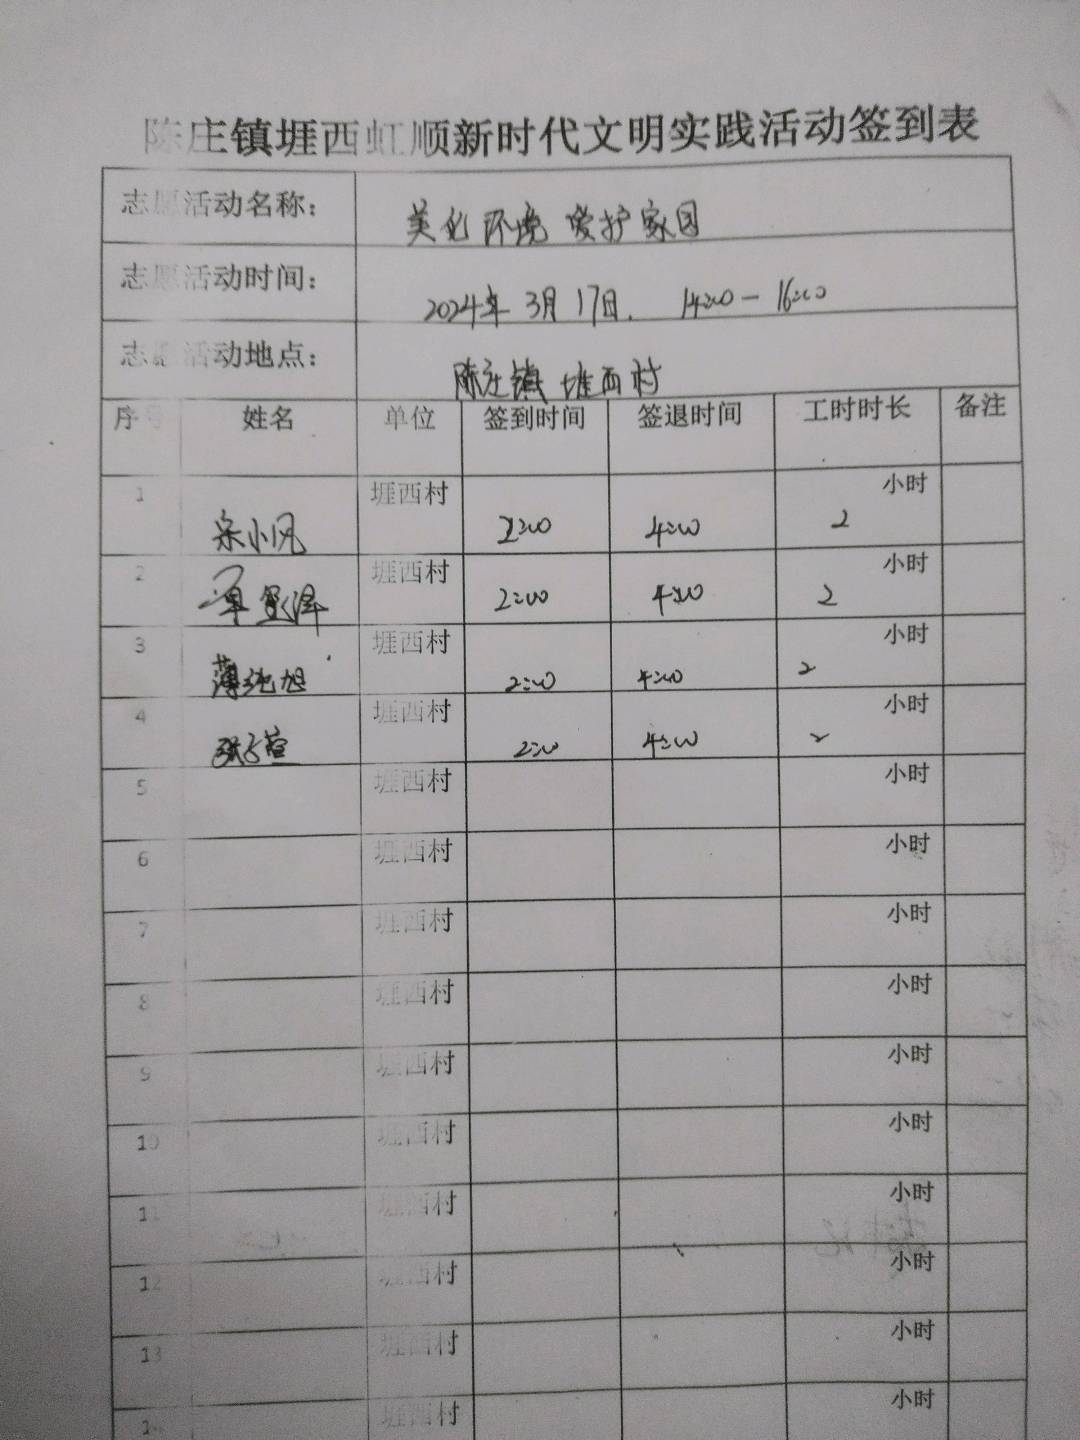 陈庄镇堐西虹顺新时代文明实践活动签到表
志愿活动名称： 美化环境 爱护家园
志愿活动时间： 2024年 3月 17日. 14:00-16:00
志愿活动地点： 陈庄镇 堐西村
序号 姓名 单位 签到时间 签退时间 工时时长 备注
1 宋小凤 堐西村 2:00 4:00 2 小时
2 堐西村 2:00 4:00 2 小时
3 薄纯旭 堐西村 2:00 4:00 2 小时
4 张子萱 堐西村 2:00 4:00 2 小时
5 堐西村 小时
6 堐西村 小时
7 堐西村 小时
8 堐西村 小时
9 堐西村 小时
10 堐西村 小时
11 堐西村 小时
12 堐西村 小时
13 堐西村 小时
14 堐西村 小时